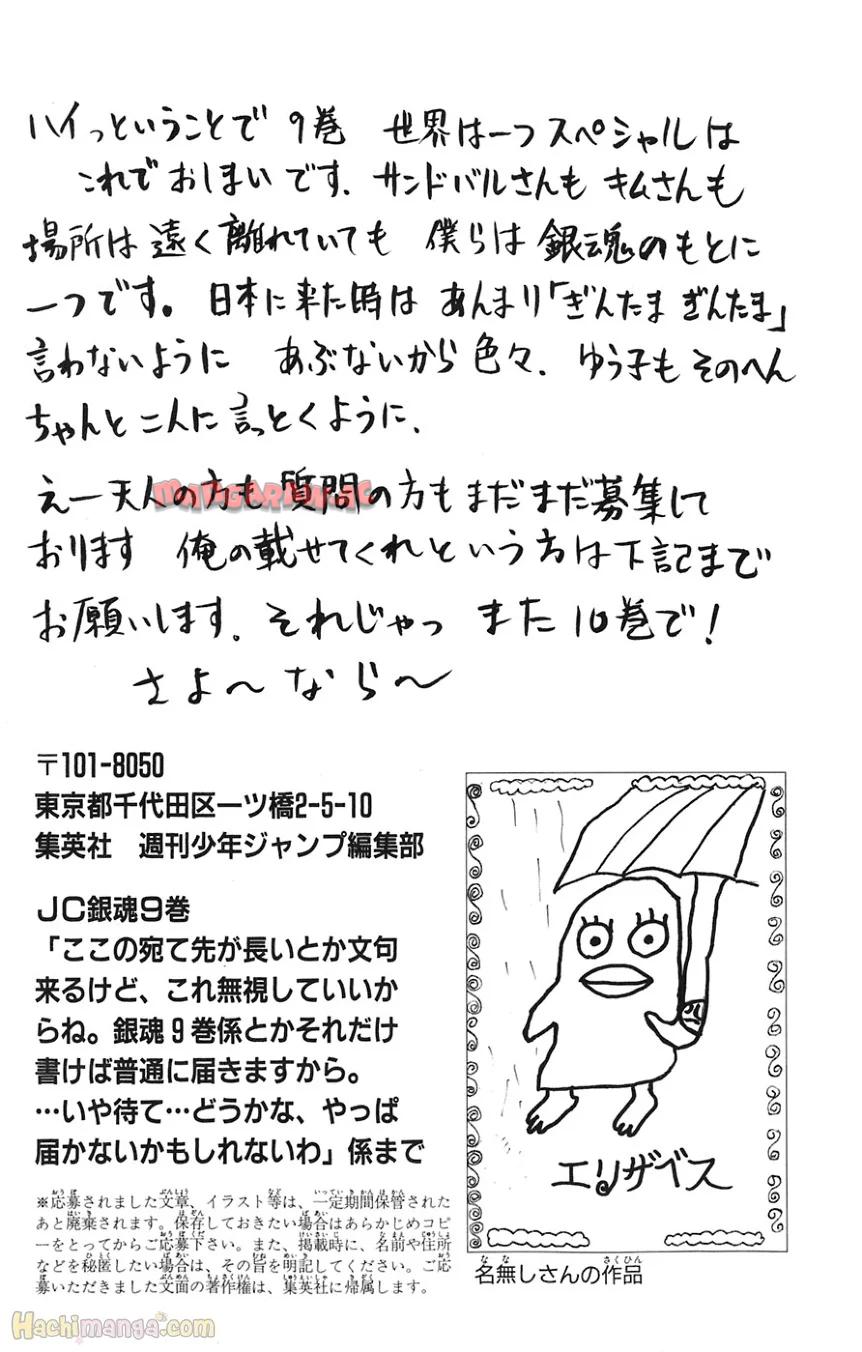 ハイっということで 9巻 世界は一つスペシャルは
これでおしまいです. サンドバルさんも キムさんも
場所は 遠く離れていても 僕らは 銀魂のもとに
一つです。日本に来た時は あんまり「ぎんたま ぎんたま」
言わないように あぶないから 色々. ゆう子も そのへん
ちゃんと 二人に 言っとくように.
えー天人の方も 質問の方も まだまだ募集して
おります 俺の載せてくれ という方は 下記まで
お願いします. それじゃっ また 10巻で!
さよ〜なら〜
〒101-8050
東京都千代田区一ツ橋2-5-10
集英社 週刊少年ジャンプ編集部
JC銀魂9巻
「ここの宛て先が長いとか文句
来るけど、これ無視していいか
らね。銀魂9巻係とかそれだけ
書けば普通に届きますから。
…いや待て…どうかな、やっぱ
届かないかもしれないわ」係まで
※応募されました文章、イラスト等は、一定期間保管された
あと廃棄されます。保存しておきたい場合はあらかじめコピ
ーをとってからご応募下さい。また、掲載時に、名前や住所
などを秘匿したい場合は、その旨を明記してください。ご応
募いただきました文面の著作権は、集英社に帰属します。
エリザベス
名無しさんの作品
Hachimanga.com